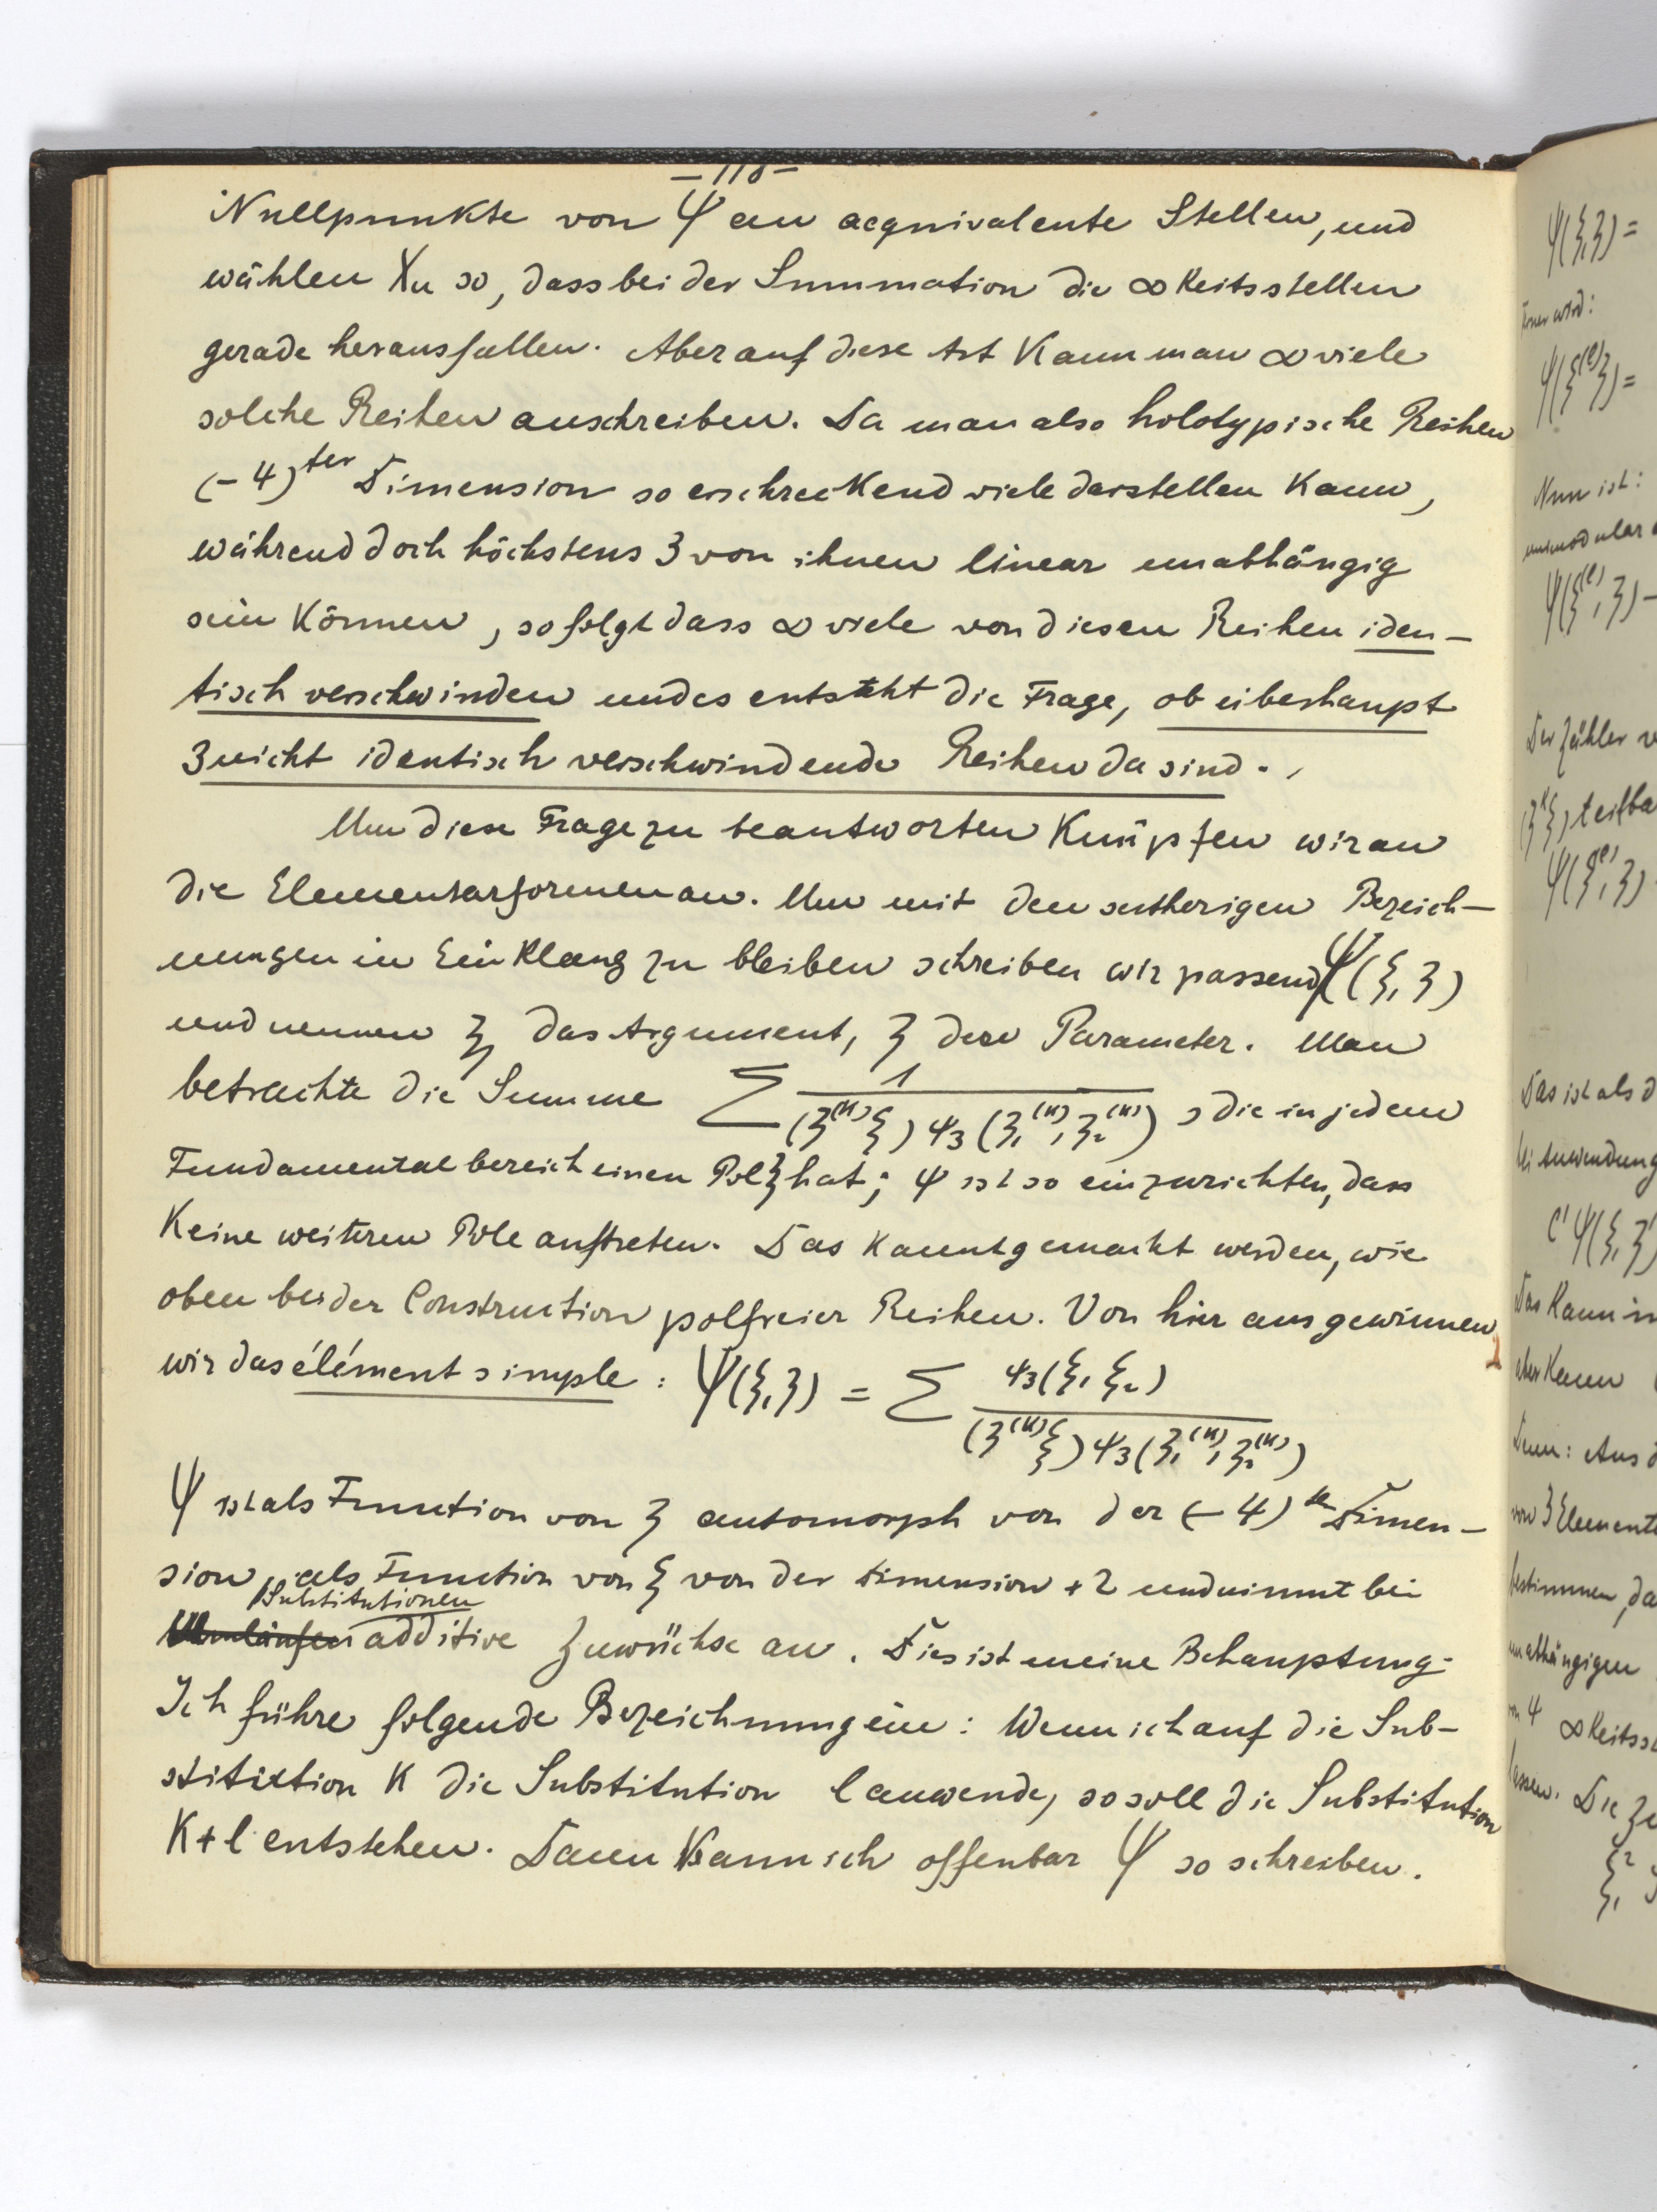 Nullpunkte von Ψ an aequivalente Stellen, und
wählen χn so, dass bei der Summation die ∞keitsstellen
gerade herausfallen. Aber auf diese Art kann man ∞ viele
solche Reihen anschreiben. Da man also holotypische Reihen
(-4)ter Dimension so erschreckend viele darstellen kann,
während doch höchstens 3 von ihnen linear unabhängig
sein können, so folgt dass ∞ viele von diesen Reihen iden-
tisch verschwinden und es entsteht die Frage, ob überhaupt
3 nicht identisch verschwindende Reihen da sind.
Um diese Frage zu beantworten knüpfen wir an
die Elementarformen an. Um mit den seitherigen Bezeich-
nungen in Einklang zu bleiben schreiben wir passend Ψ(ξ, ʒ)
und nennen ξ das Argument, ʒ den Parameter. Man
betrachte die Summe Σ 1/((ʒ⁽ᵏ⁾ξ) ψ₃(ʒ₁⁽ᵏ⁾, ʒ₂⁽ᵏ⁾)), die in jedem
Fundamentalbereich einen Pol ξ hat; ψ ist so einzurichten, dass
keine weiteren Pole auftreten. Das kannt gemacht werden, wie
oben bei der Construction polfreier Reihen. Von hier aus gewinnen
wir das élément simple: Ψ(ξ, ʒ) = Σ ψ₃(ξ₁ ξ₂)/((ʒ⁽ᵏ⁾ξ) ψ₃(ʒ₁⁽ᵏ⁾, ʒ₂⁽ᵏ⁾))
Ψ ist als Function von ʒ automorph von der (-4)ten Dimen-
sion, als Function von ξ von der Dimension +2 und nimmt bei
Substitutionen
Umläufen additive Zuwüchse an. Dies ist meine Behauptung.
Ich führe folgende Bezeichnung ein: Wenn ich auf die Sub-
stitution K die Substitution l anwende, so soll die Substitution
K+l entstehen. Dann kann ich offenbar Ψ so schreiben.
Ψ(ξ, ʒ) =
Nun ist:
Der Zähler
Das ist als d
bei Anwendung
Das kann in
aber kann
Denn: Aus d
von 3 Elemente
bestimmen, da
unabhängigen